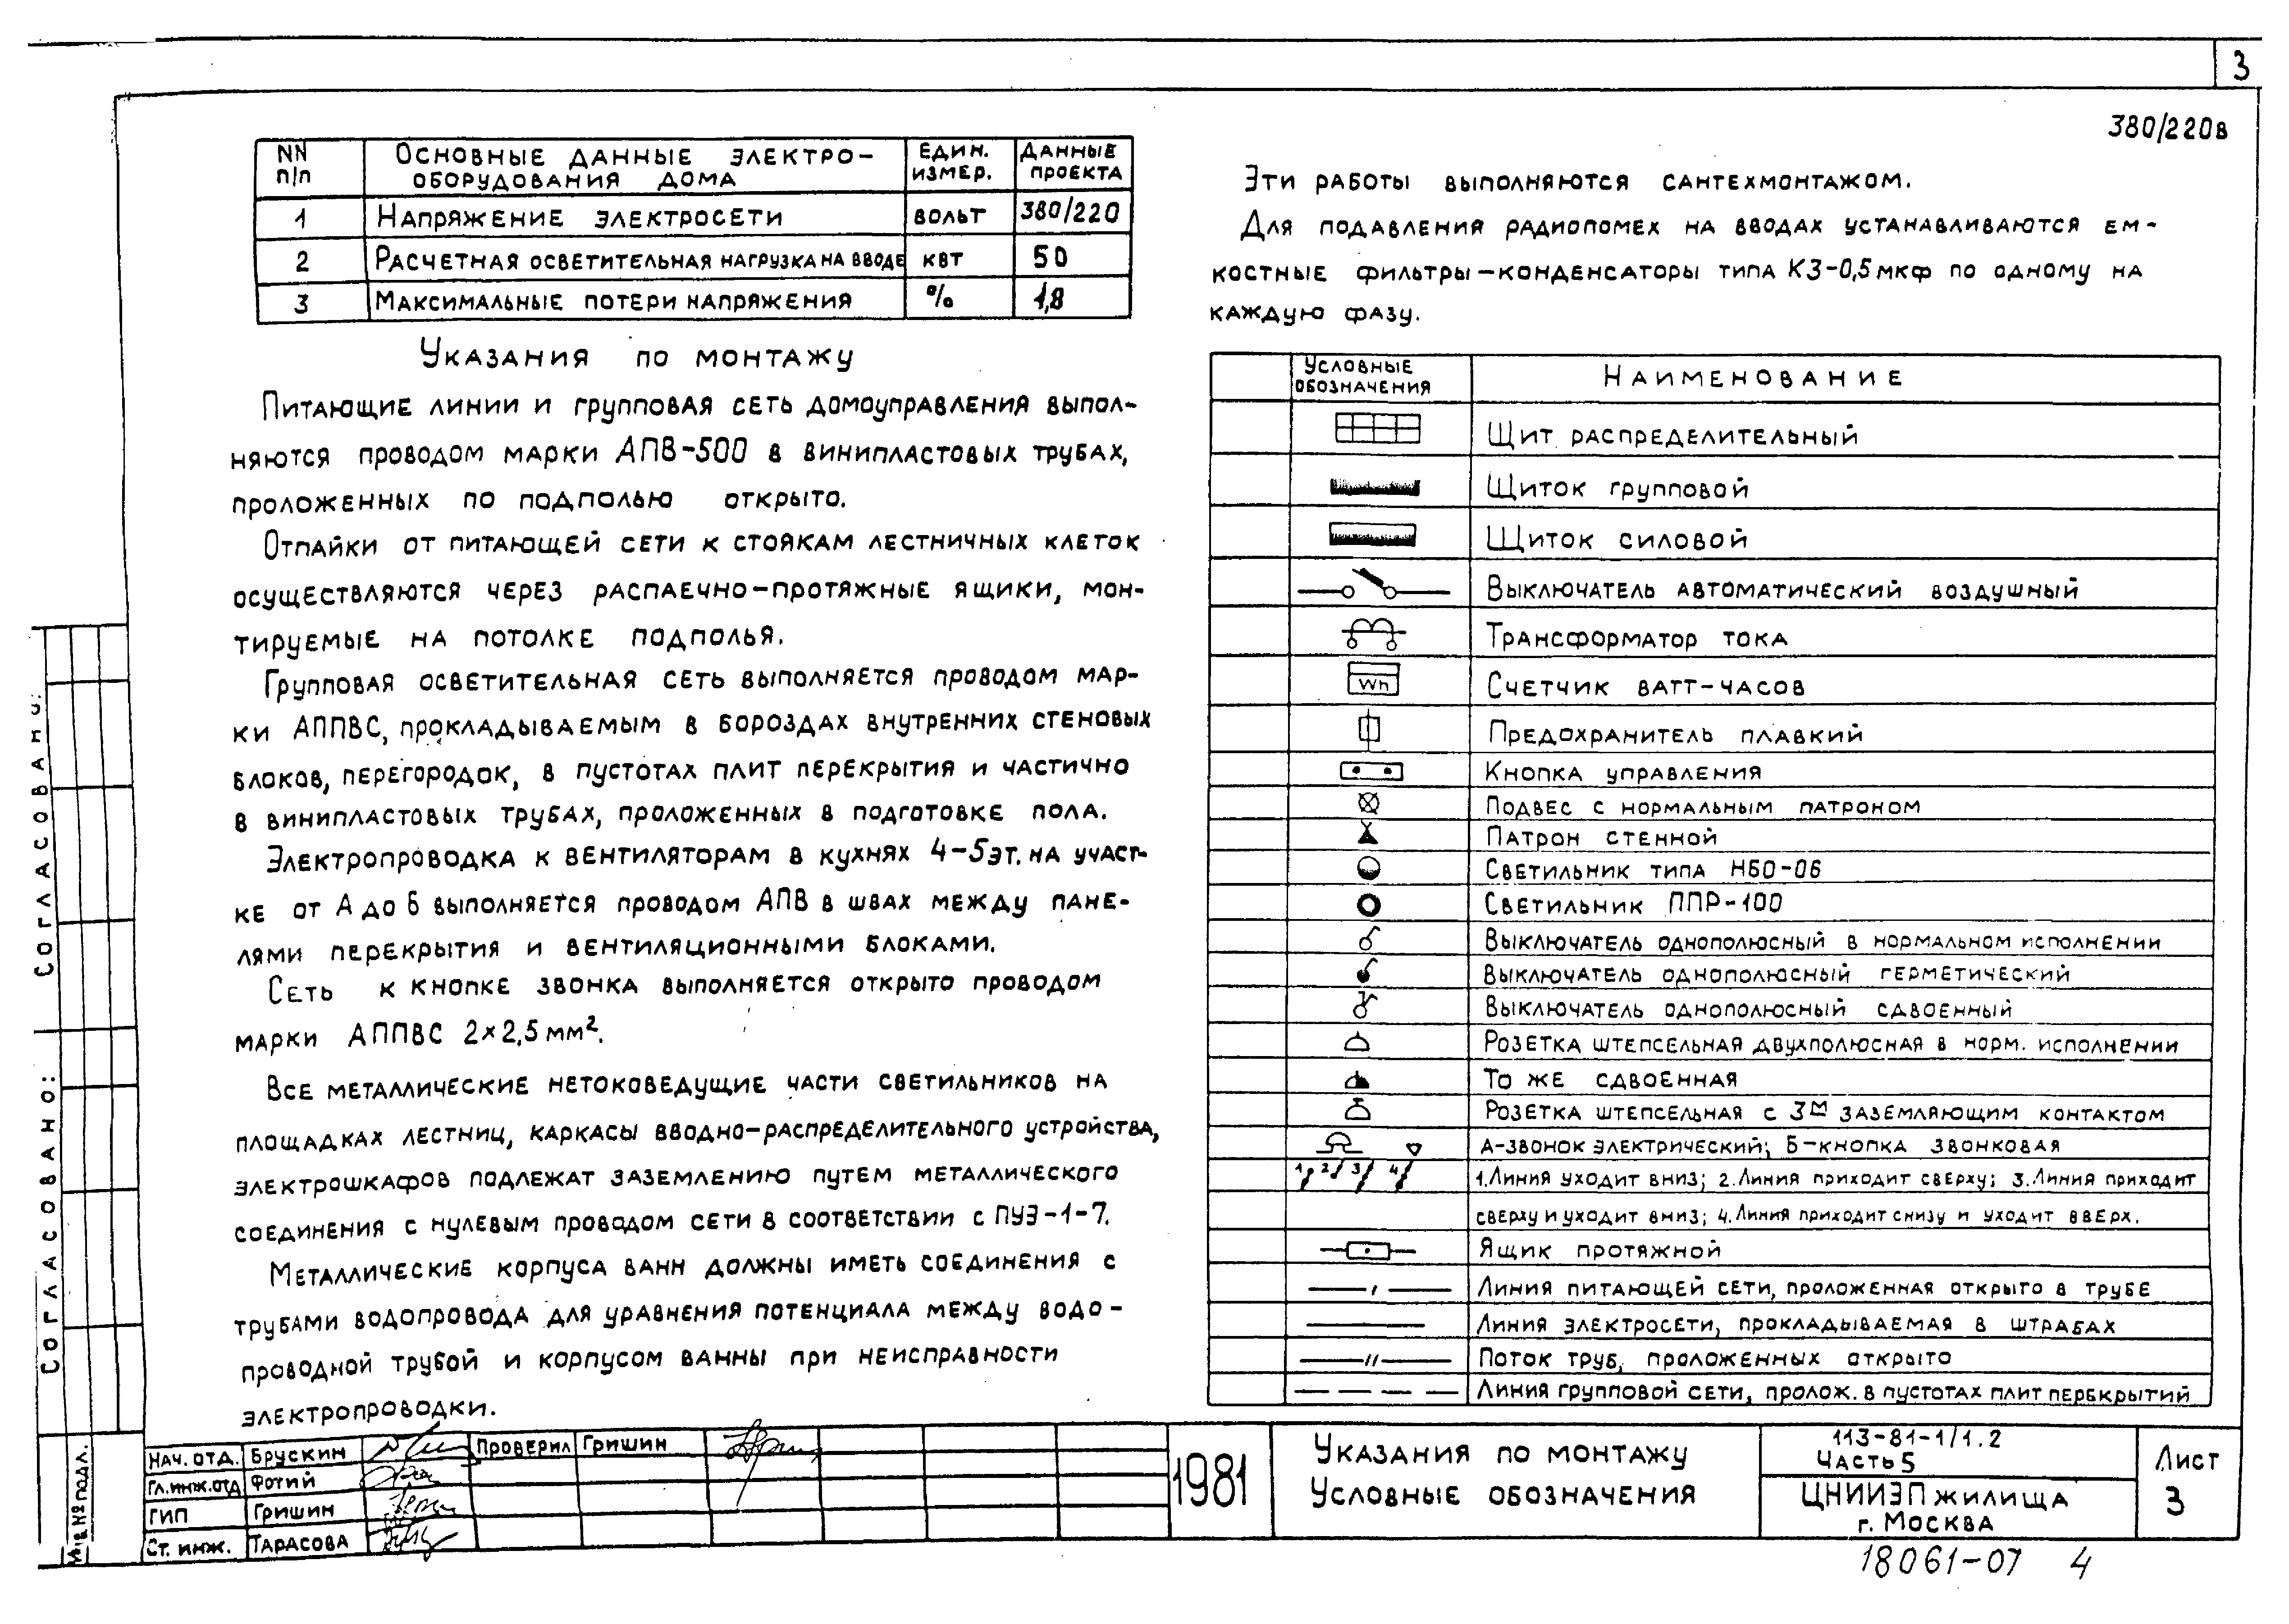 3
380/220в
NN п/п
Основные данные электро-
оборудования дома
Един. измер.
Данные проекта
1 Напряжение электросети вольт 380/220
2 Расчетная осветительная нагрузка на вводе квт 50
3 Максимальные потери напряжения % 1,8
Указания по монтажу
Питающие линии и групповая сеть домоуправления выпол-
няются проводом марки АПВ-500 в винипластовых трубах,
проложенных по подполью открыто.
Отпайки от питающей сети к стоякам лестничных клеток
осуществляются через распаечно-протяжные ящики, мон-
тируемые на потолке подполья.
Групповая осветительная сеть выполняется проводом мар-
ки АППВС, прокладываемым в бороздах внутренних стеновых
блоков, перегородок, в пустотах плит перекрытия и частично
в винипластовых трубах, проложенных в подготовке пола.
Электропроводка к вентиляторам в кухнях 4-5эт. на участ-
ке от А до Б выполняется проводом АПВ в швах между пане-
лями перекрытия и вентиляционными блоками.
Сеть к кнопке звонка выполняется открыто проводом
марки АППВС 2×2,5 мм².
Все металлические нетоковедущие части светильников на
площадках лестниц, каркасы вводно-распределительного устройства,
электрошкафов подлежат заземлению путем металлического
соединения с нулевым проводом сети в соответствии с ПУЭ-1-7.
Металлические корпуса ванн должны иметь соединения с
трубами водопровода для уравнения потенциала между водо-
проводной трубой и корпусом ванны при неисправности
электропроводки.
Эти работы выполняются сантехмонтажом.
Для подавления радиопомех на вводах устанавливаются ем-
костные фильтры-конденсаторы типа КЗ-0,5 мкф по одному на
каждую фазу.
Условные обозначения
Наименование
Щит распределительный
Щиток групповой
Щиток силовой
Выключатель автоматический воздушный
Трансформатор тока
Wh Счетчик ватт-часов
Предохранитель плавкий
Кнопка управления
Подвес с нормальным патроном
Патрон стенной
Светильник типа НБО-06
Светильник ППР-100
Выключатель однополюсный в нормальном исполнении
Выключатель однополюсный герметический
Выключатель однополюсный сдвоенный
Розетка штепсельная двухполюсная в норм. исполнении
То же сдвоенная
Розетка штепсельная с 3м заземляющим контактом
А-звонок электрический; Б-кнопка звонковая
1 2 3 4 1.Линия уходит вниз; 2.Линия приходит сверху; 3.Линия приходит
сверху и уходит вниз; 4.Линия приходит снизу и уходит вверх.
Ящик протяжной
Линия питающей сети, проложенная открыто в трубе
Линия электросети, прокладываемая в штрабах
Поток труб, проложенных открыто
Линия групповой сети, пролож. в пустотах плит перекрытий
Согласовано:
Согласовано:
Инв.№ подл.
Нач. отд. Брускин Проверил Гришин
Гл.инж.отд Фотий
ГИП Гришин
Ст. инж. Тарасова
1981
Указания по монтажу
Условные обозначения
113-81-1/1.2
Часть 5
ЦНИИЭП жилища
г. Москва
Лист
3
18061-07 4